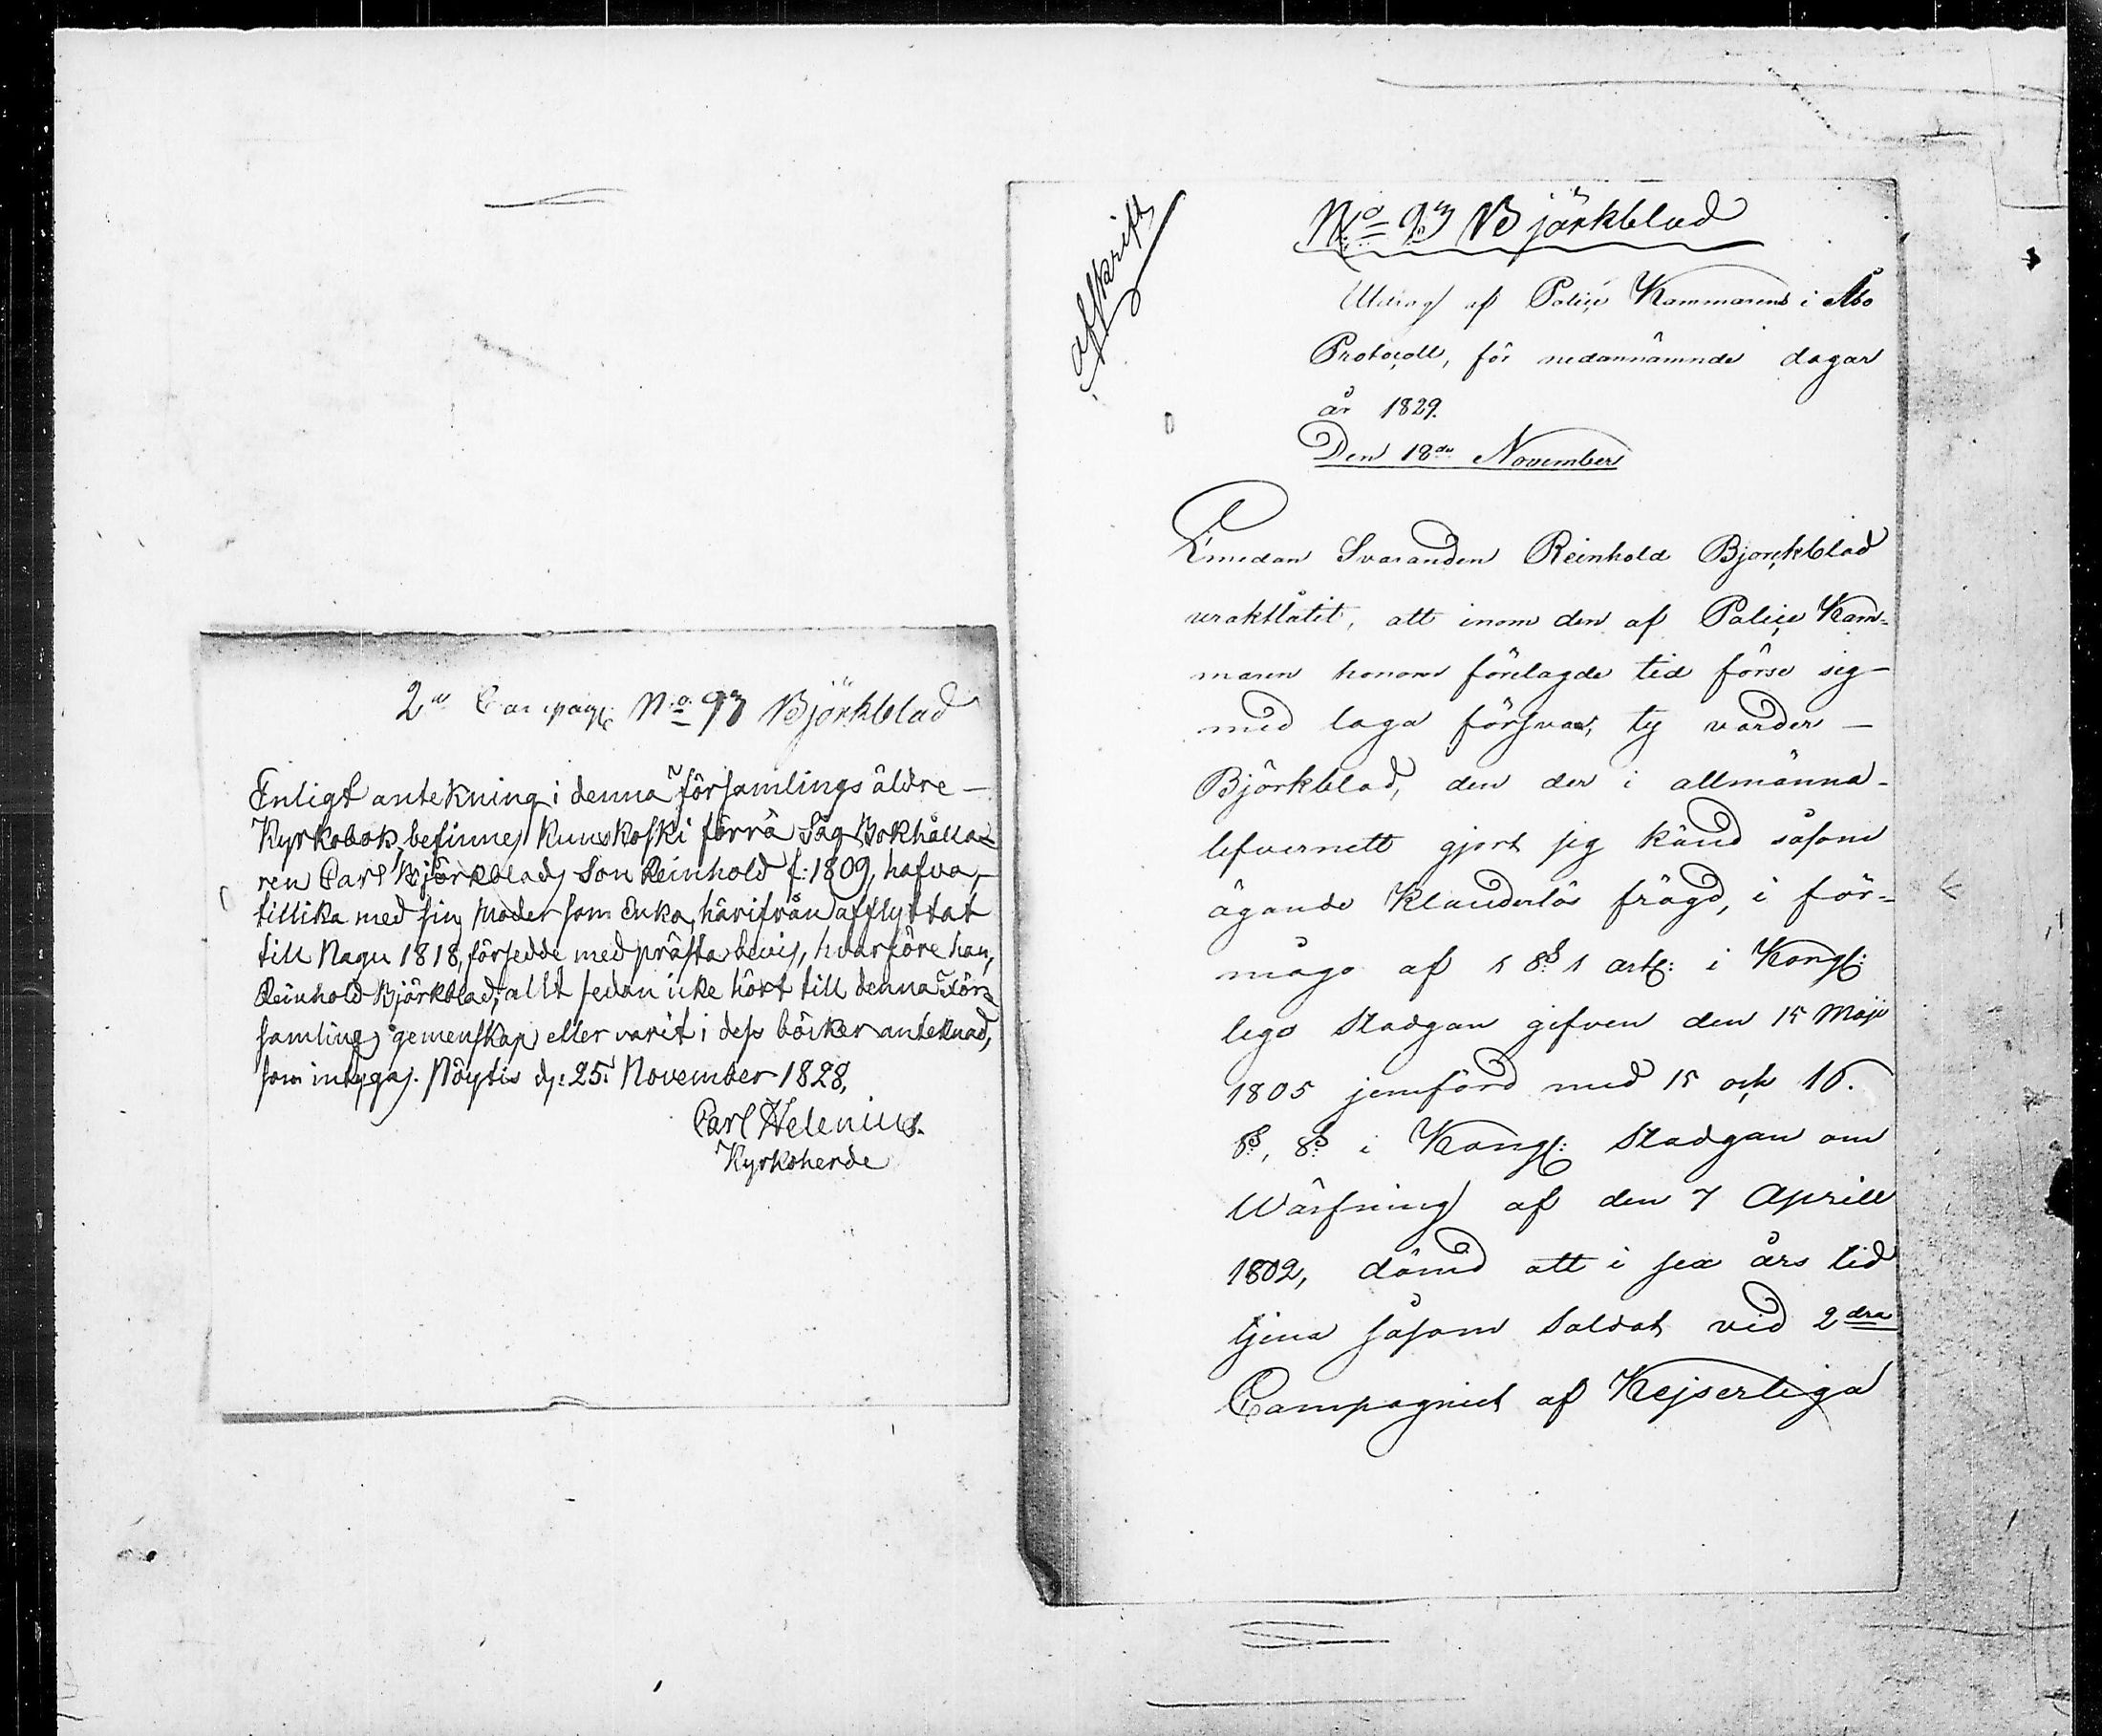 2:a Compag: N:o 93 Björkblad
Enligt antekning i denna församlings äldre
Kyrkobok, befinnes Kuuskoski förra Såg Bokhålla-
ren Carl Björkblads Son Reinhold f: 1809, hafva,
tillika med sin Moder som Enka, härifrån afflyttat
till Nagu 1818, försedde med prästabevis, hvarföre han,
Reinhold Björkblad, allt sedan icke hört till denna För-
samlings gemenskap eller varit i dess böcker anteknad,
som intygas. Nöytis d: 25. November 1828,
Carl Helenius.
Kyrkoherde
afskrift
N:o 93 Björkblad
Utdrag af Police Kammarens i Åbo
Protocoll, för nedannämnde dagar
år 1829.
Den 18de November
Emedan Svaranden Reinhold Bjorckblad
uraktlåtit, att inom den af Police Kam-
maren honom förelagde tid förse sig
med laga försvar, ty varder
Björkblad, den der i allmänna
lefvernett gjort sig känd såsom
ägande Klanderlös frägd, i för-
mågo af 1 §. 1 art: i Kongl:
lego Stadgan gifven den 15 Maji
1805 jemförd med 15 och 16.
§. §. i Kongl: Stadgan om
Wärfning af den 7 Aprill
1802, dömd att i sex års tid
tjena såsom Soldat vid 2dra
Compagniet af Kejserliga